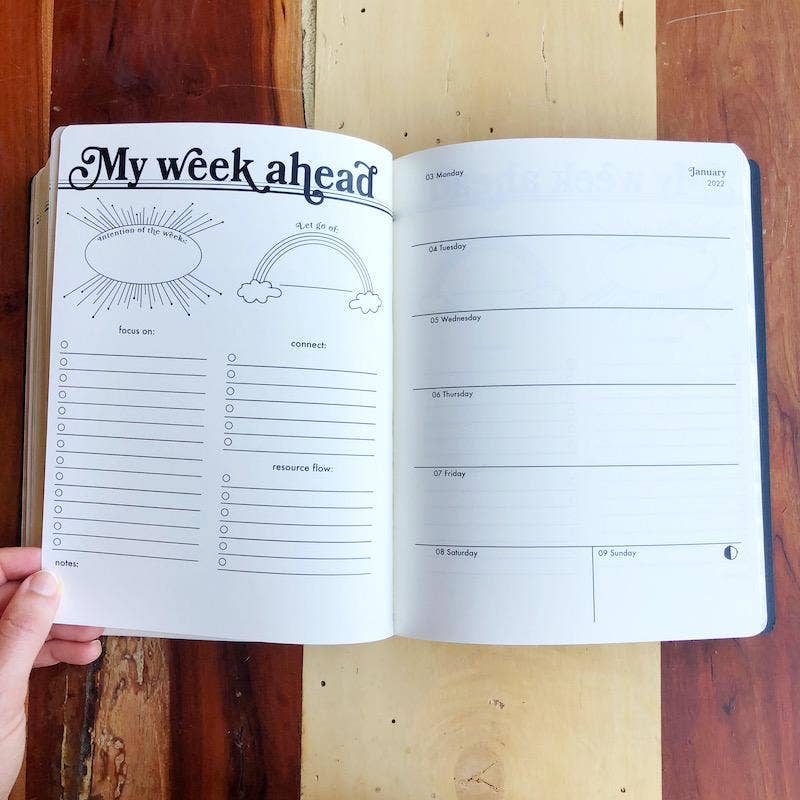 My week ahead
Intention of the weeks:
Let go of:
focus on:
connect:
resource flow:
notes:
03 Monday
January
2022
04 Tuesday
05 Wednesday
06 Thursday
07 Friday
08 Saturday
09 Sunday